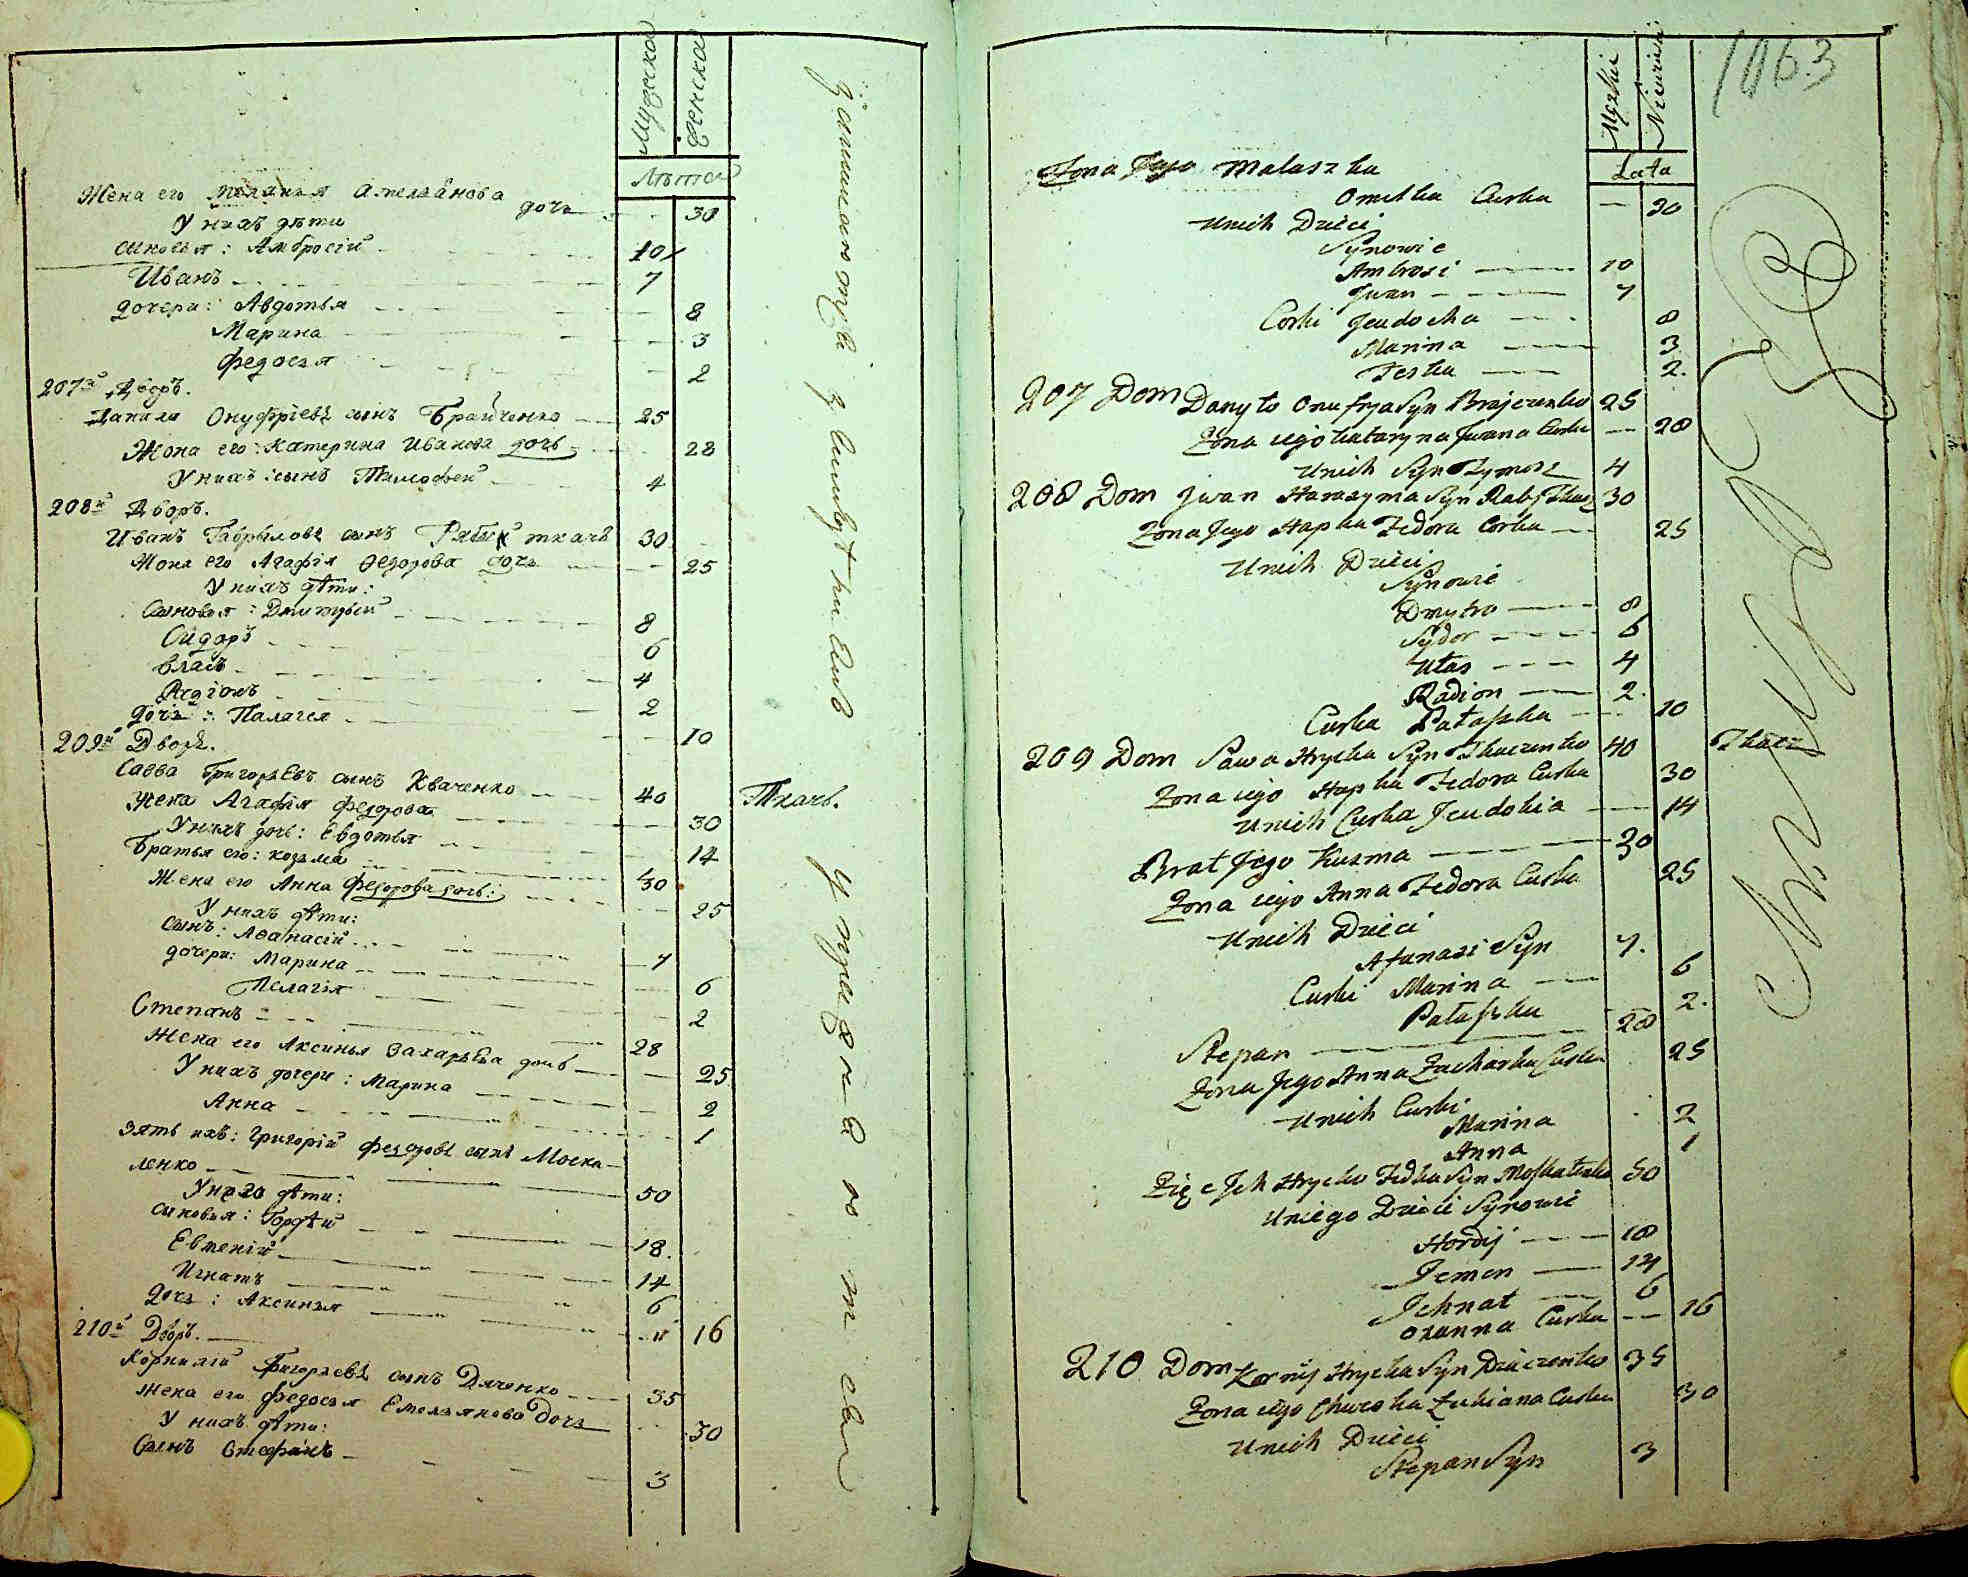 Мужска
Женска
Лѣта
Жена его Меланья Омельянова дочь 30
У нихъ дѣти
сыновья: Амбросій 10
Иванъ 7
дочери: Авдотья 8
Марина 3
Федосья 2
207й Дворъ.
Данила Онуфріевъ сынъ Брайченко 25
Жена его: Катерина Иванова дочь 28
У нихъ сынъ Тимофей 4
208й Дворъ.
Иванъ Гаврыловъ сынъ Рябый ткачъ 30
Жена его Агафія Федорова дочь 25
У нихъ дѣти:
Сыновья: Дмитрій 8
Сидоръ 6
Власъ 4
Родіонъ 2
дочь: Палагея 10
209й Дворъ.
Савва Григорьевъ сынъ Кваченко 40 Ткачъ.
Жена Агафія Федорова 30
У нихъ дочь: Евдотья 14
Братья его: Козьма 30
Жена его Анна Федорова дочь: 25
У нихъ дѣти:
Сынъ: Афанасій 7
дочери: Марина 6
Пелагія 2
Степанъ 28
Жена его Аксинья Захарьева дочь 25
У нихъ дочери: Марина 2
Анна 1
Зять ихъ: Григорій Федоровъ сынъ Моска-
ленко 50
У него дѣти:
сыновья: Гордѣй 18.
Евменій 14
Игнатъ 6
Дочь: Аксинья 16
210й Дворъ.
Корнилій Григорьевъ сынъ Дяченко 35
Жена его Федосья Емельянова дочь 30
У нихъ дѣти:
Сынъ Стефанъ 3
1063
Męzkie
Niewiescie
Lata
Zona Jego Malaszka
Omelka Curka 30
Unich Dzieci
Synowie
Ambrosi 10
Jwan 7
Corki Jeudocka 8
Marina 3
Feska 2.
207 Dom Danyło Onufryja Syn Brajczenko 25
Zona iego Kataryna Jwana Curka 28
Unich Syn Tymosz 4
208 Dom Jwan Harasyma Syn Raby Tkacz 30
Zona Jego Hapka Fedora Corka 25
Unich Dzieci
Synowie
Dmytro 8
Sydor 6
Ułas 4
Radion 2.
Curka Pałaszka 10
209 Dom Sawa Hrycka Syn Tkaczenko 40 Tkacz
Zona iego Hapka Fedora Curka 30
Unich Curka Jeudokia 14
Brat Jego Kuzma 30
Zona iego Anna Fedora Curka 25
Unich Dzieci
Afanasi Syn 7.
Curki Marina 6
Pałaszka 2.
Stepan 28
Zona Jego Anna Zacharka Curka 25
Unich Curki
Marina 2
Anna 1
Zięc Jch Hrycko Fedka Syn Moskalenko 50
Uniego Dzieci Synowie
Hordij 18
Jemen 14
Jchnat 6
Oxanna Curka 16
210 Dom Kornij Hrycka Syn Dziaczenko 35
Zona iego Chweska Curka 30
Unich Dzieci
Stepan Syn 3